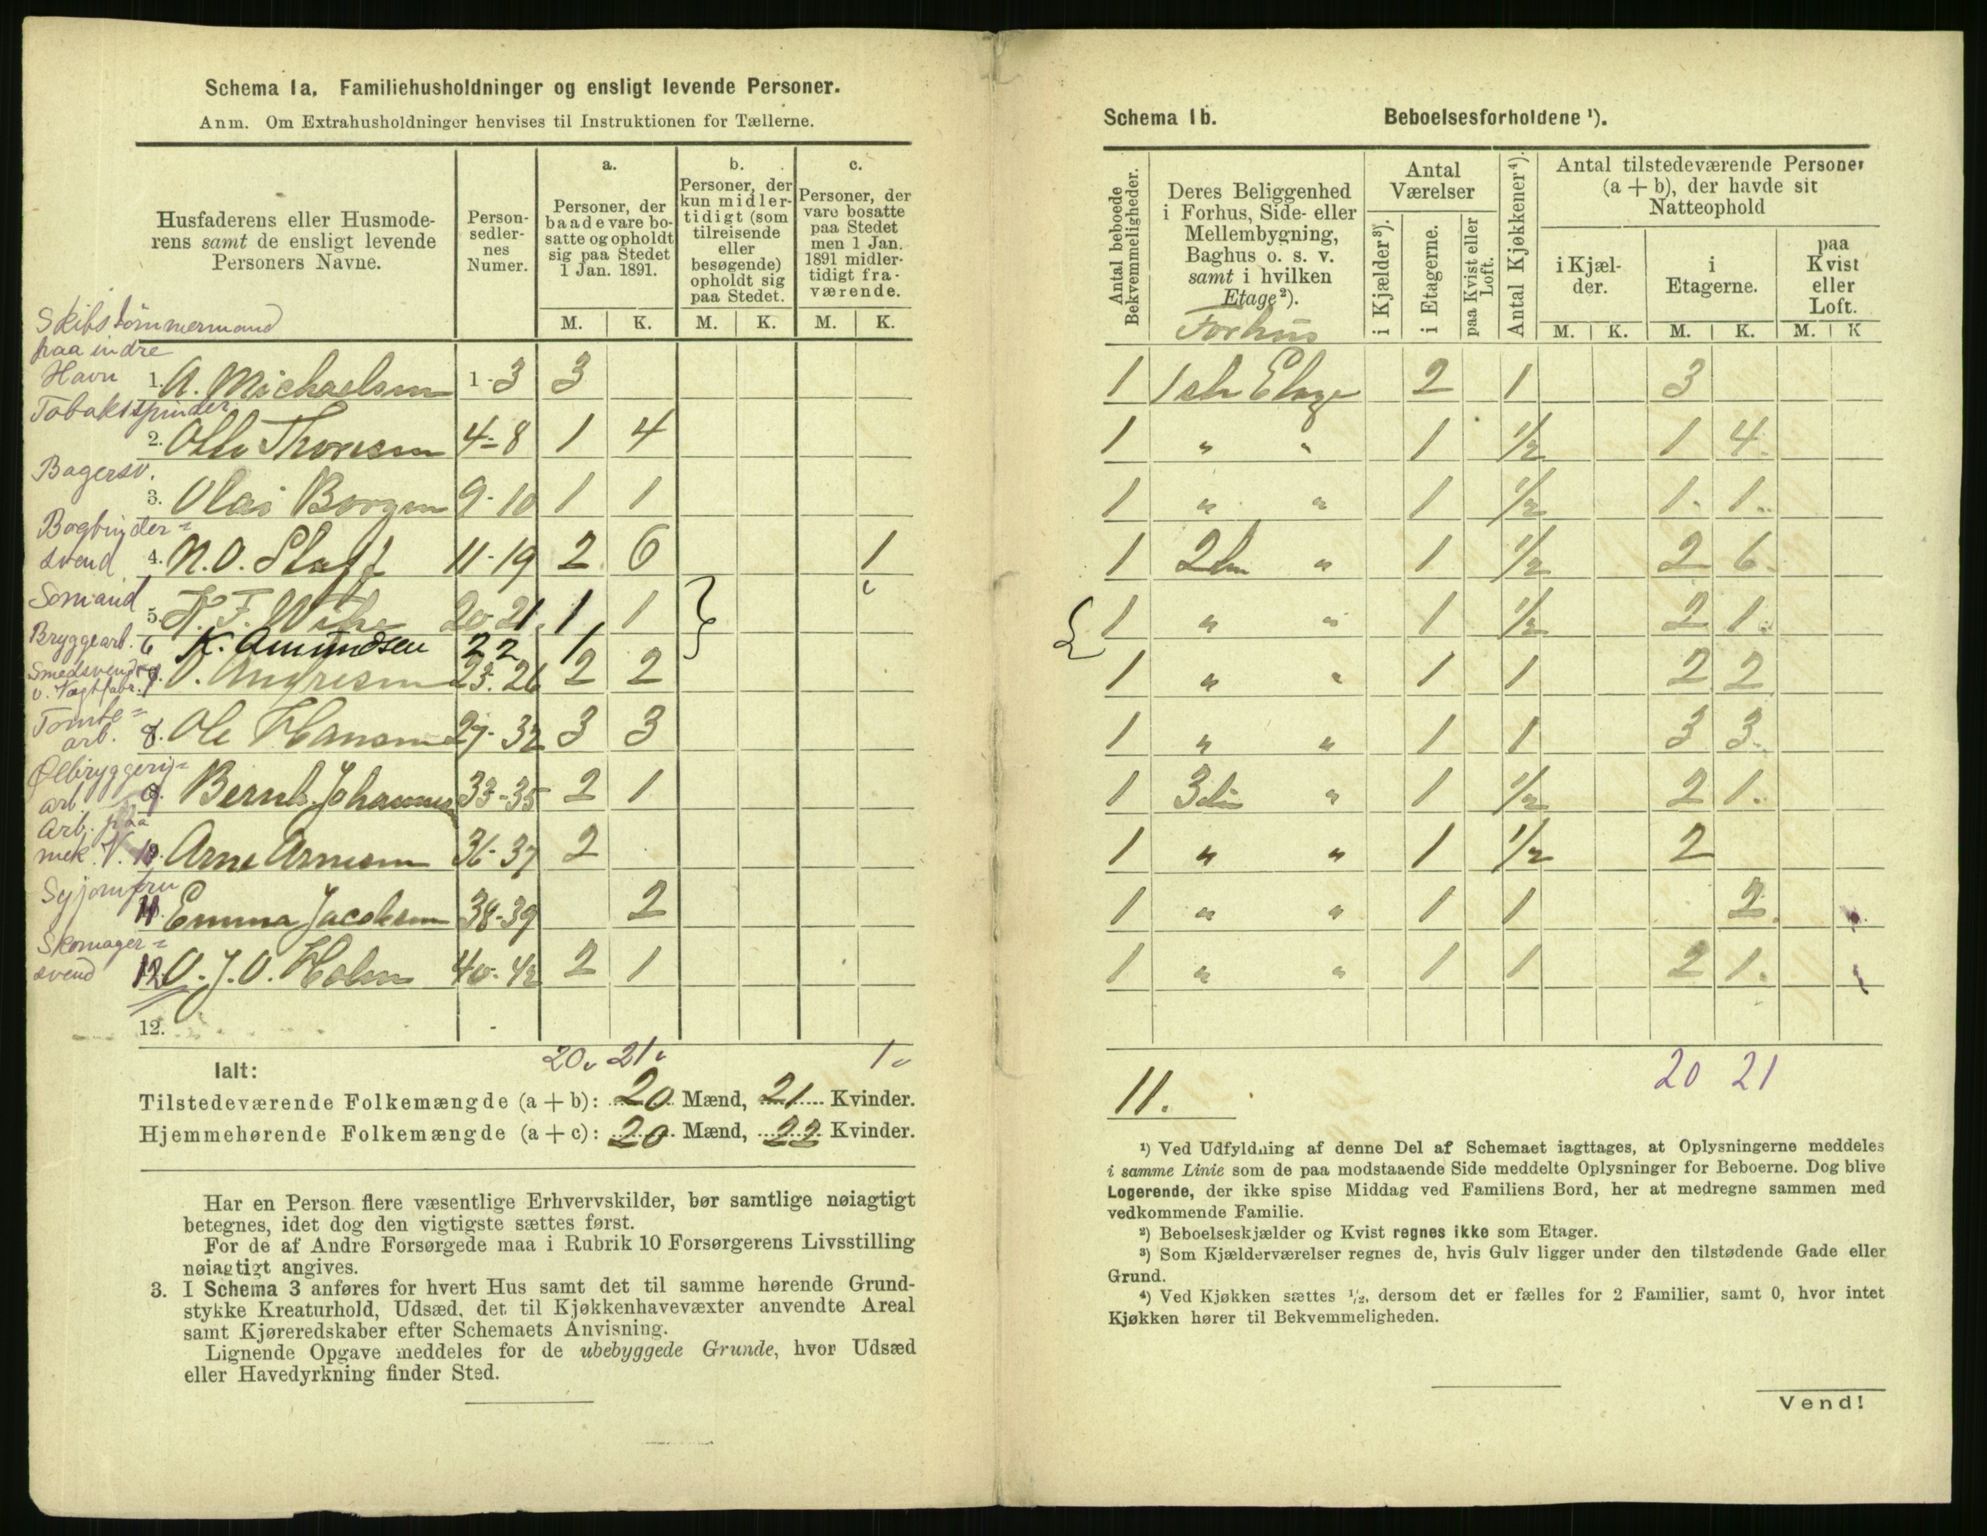 Schema 1a. Familiehusholdninger og ensligt levende Personer.
Anm. Om Extrahusholdninger henvises til Instruktionen for Tællerne.
Husfaderens eller Husmode-
rens samt de ensligt levende
Personers Navne.
Person-
sedler-
nes
Numer.
a.
Personer, der
baade vare bo-
satte og opholdt
sig paa Stedet
1 Jan. 1891.
b.
Personer, der
kun midler-
tidigt (som
tilreisende
eller
besøgende)
opholdt sig
paa Stedet.
c.
Personer, der
vare bosatte
paa Stedet
men 1 Jan.
1891 midler-
tidigt fra-
værende.
M. K. M. K. M. K.
Skibstømmermand
paa indre
Havn 1. A. Michaelsen 1-3 3
Tobakspinder
2. Olle Thoresen 4-8 1 4
Bagersv.
3. Olai Borgen 9-10 1 1
Bogbinder=
svend 4. N. O. Staff 11-19 2 6 1
Sømand
5. 20-21. 1 1
Bryggearb. 6 K. Amundsen 22 1
Smedsvend
O. 23-26 2 2
Tomte=
arb. 8. Ole Hansen 27-32 3 3
Ølbryggeri=
arb. 9. Bernh. Johannes 33-35 2 1
Arb. paa
mek. V. 10. Arne Arnesen 36-37 2
Syjomfru
11. Emma Jacobsen 38-39 2
Skomager=
svend 12. O. J. O. Holm 40-42 2 1
12.
20 21 1
Ialt:
Tilstedeværende Folkemængde (a + b): 20 Mænd, 21 Kvinder.
Hjemmehørende Folkemængde (a + c): 20 Mænd, 22 Kvinder.
Har en Person flere væsentlige Erhvervskilder, bør samtlige nøiagtigt
betegnes, idet dog den vigtigste sættes først.
For de af Andre Forsørgede maa i Rubrik 10 Forsørgerens Livsstilling
nøiagtigt angives.
3. I Schema 3 anføres for hvert Hus samt det til samme hørende Grund-
stykke Kreaturhold, Udsæd, det til Kjøkkenhavevæxter anvendte Areal
samt Kjøreredskaber efter Schemaets Anvisning.
Lignende Opgave meddeles for de ubebyggede Grunde, hvor Udsæd
eller Havedyrkning finder Sted.
Schema 1b. Beboelsesforholdene ¹).
Antal beboede
Bekvemmeligheder.
Deres Beliggenhed
i Forhus, Side- eller
Mellembygning,
Baghus o. s. v.
samt i hvilken
Etage²).
Forhus
Antal
Værelser
i Kjælder³).
i Etagerne.
paa Kvist eller
Loft.
Antal Kjøkkener⁴).
Antal tilstedeværende Personer
(a + b), der havde sit
Natteophold
i Kjæl-
der.
i
Etagerne.
paa
Kvist
eller
Loft.
M. K. M. K. M. K
1 1ste Etage 2 1 3
1 " " 1 1/2 1 4
1 " " 1 1/2 1 1
1 2den " 1 1/2 2 6
1 " " 1 1/2 2 1
1 " " 1 1 2 2
1 " " 1 1 3 3
1 3die " 1 1/2 2 1
1 " " 1 1/2 2
1 " " 1 1 2
1 " " 1 1 2 1
20 21
11.
¹) Ved Udfyldning af denne Del af Schemaet iagttages, at Oplysningerne meddeles
i samme Linie som de paa modstaaende Side meddelte Oplysninger for Beboerne. Dog blive
Logerende, der ikke spise Middag ved Familiens Bord, her at medregne sammen med
vedkommende Familie.
²) Beboelseskjælder og Kvist regnes ikke som Etager.
³) Som Kjælderværelser regnes de, hvis Gulv ligger under den tilstødende Gade eller
Grund.
⁴) Ved Kjøkken sættes ½, dersom det er fælles for 2 Familier, samt 0, hvor intet
Kjøkken hører til Bekvemmeligheden.
Vend!